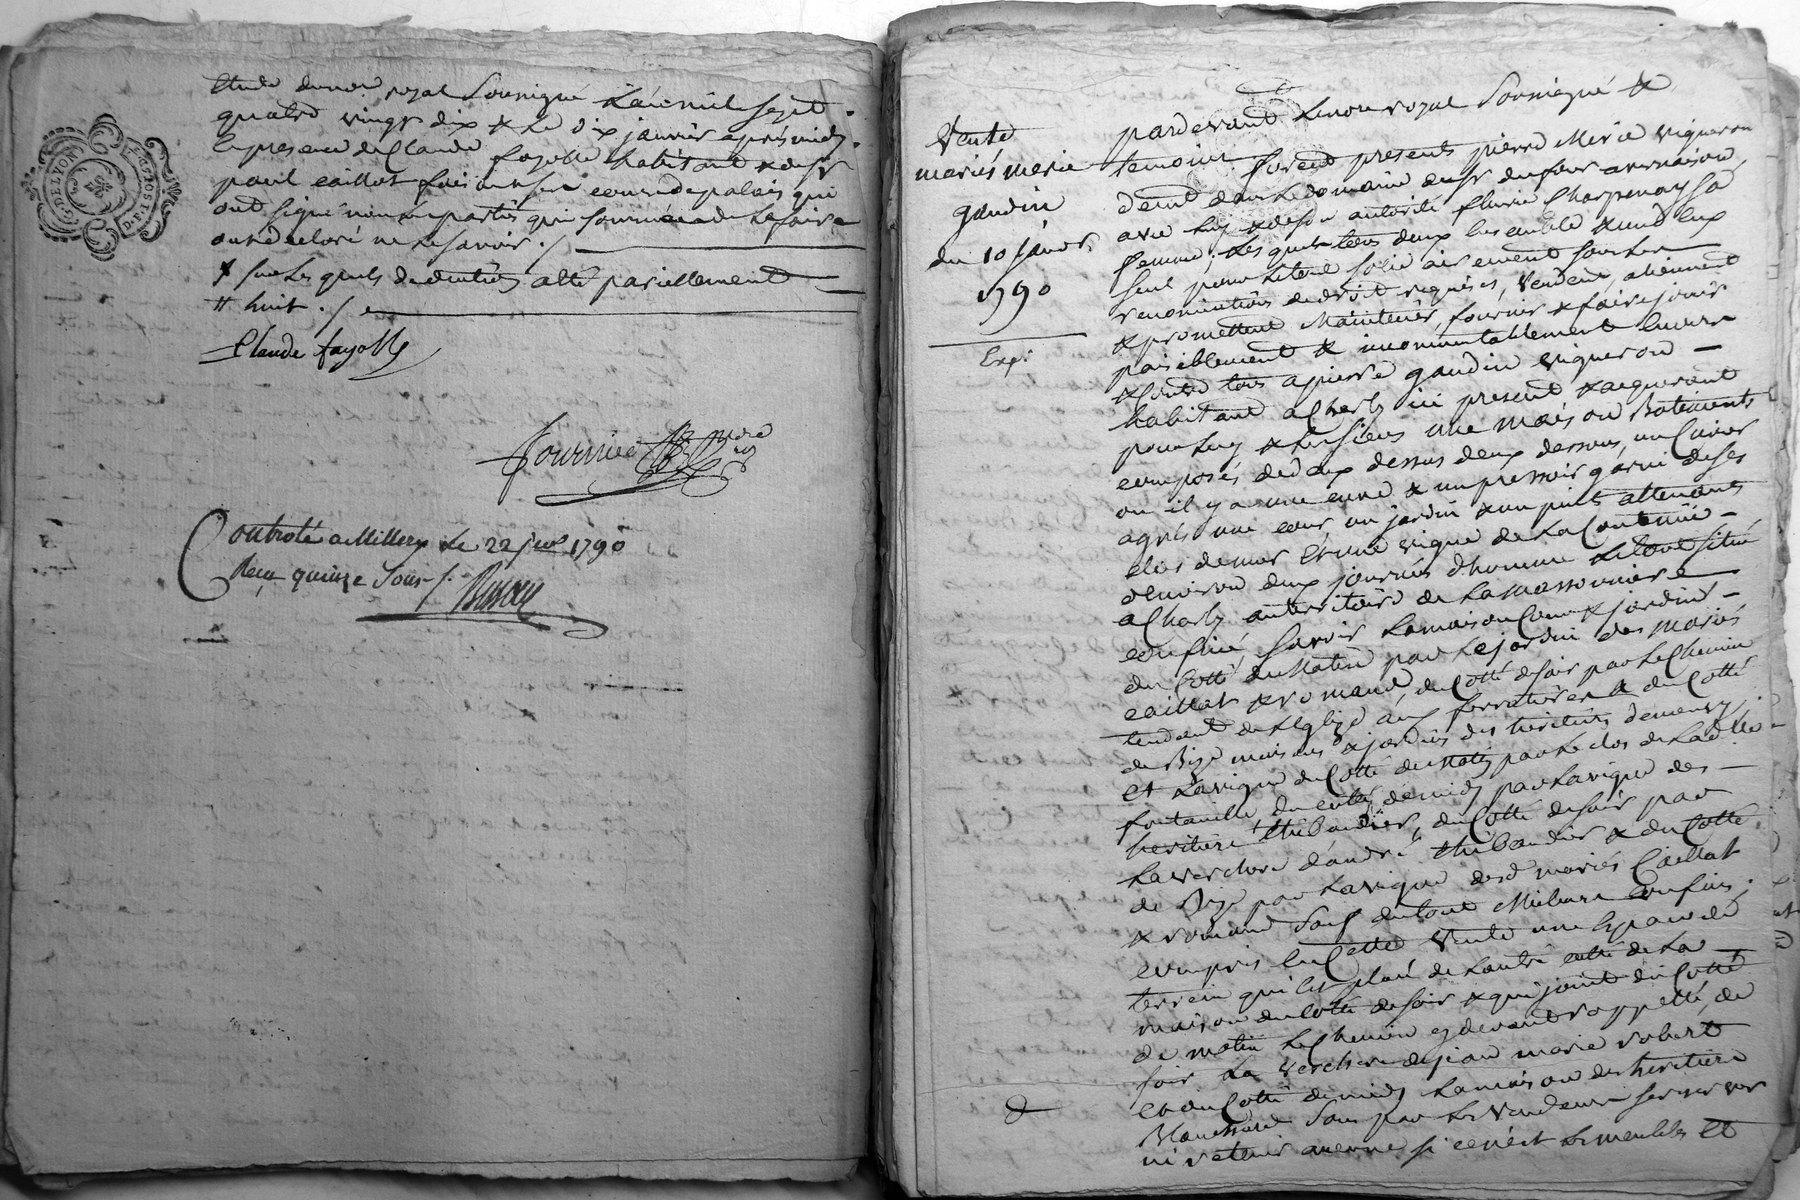 Etude dunore royal Soussigné L'an mil sept
quatre vingt dix & Le dix janvier après midy
En presence de Claude fayolle habitant &
paul caillot faisant
ont signé non les parties qui Sommées de Le faire
ont déclaré ne Le savoir ./.
x sur Les quels allé pareillement
# huit ./.
Claude fayolle
fournier
Controlé a Millery Le 22 janv 1790
Reçu quinze Sous ./.
G. DE LYON
Vente
mariés merie
gaudin
du 10 janvr
1790
Exp:
pardevant Le nore royal Soussigné &
temoins furent presents pierre Merie vigneron
demt dans Le domaine du Sr dufour a vernaison,
avec luy & de Son autorité fleurie Charpenay Sa
femme, Les quels tous deux Ensemble & un d'eux
Seul pour Le tout Solidairement Sous Les
renonciations de droit requises, Vendent, alienent
& promettent Maintenir, fournir & faire jouir
paisiblement & incommutablement Envers
& Contre tous a pierre gaudin vigneron
habitant a Charly ici present & acquerant
pour luy & Les Siens une maison Batiments
composés de deux dessus deux dessous, un Cuvier
ou il y a une cuve & un pressoir garni de Ses
agrés une cour un jardin & un puit attenants
clos de mur Et une vigne de La Contenüe
d'environ deux journés d'homme Le tout Situé
a Charly au territoire de La massonniere
confiné Savoir La maison Cour & jardin
du Cotté du Matin par Le jardin des mariés
caillat & romand, du Cotté de Soir par Le Chemin
tendant de L'Eglise aux ferratieres & du Cotté
de Bize maisons & jardins des heritiers
et La vigne du Cotté du Matin par Le clos de La dlle
fontanille, du cotté de midy par La vigne des
heritiers thibaudier, du Cotté de Soir par
La verchere d'andré thibaudier & du Cotté
de Bize par La vigne desd mariés Caillat
& romand Sauf du tout Meilleurs Confins;
compris En Cette Vente une Espace de
terrein qui Est placé de L'autre cotté de La
maison du Cotté de Soir & qui joint du Cotté
de matin Le Chemin cy devant rappellé, de
Soir La Verchere de jean marie robert
et du Cotté de midy La maison des heritiers
Blanchard Sans par Les Vendeurs Se reserver
ni retenir aucune si ce n'est Les meubles Et